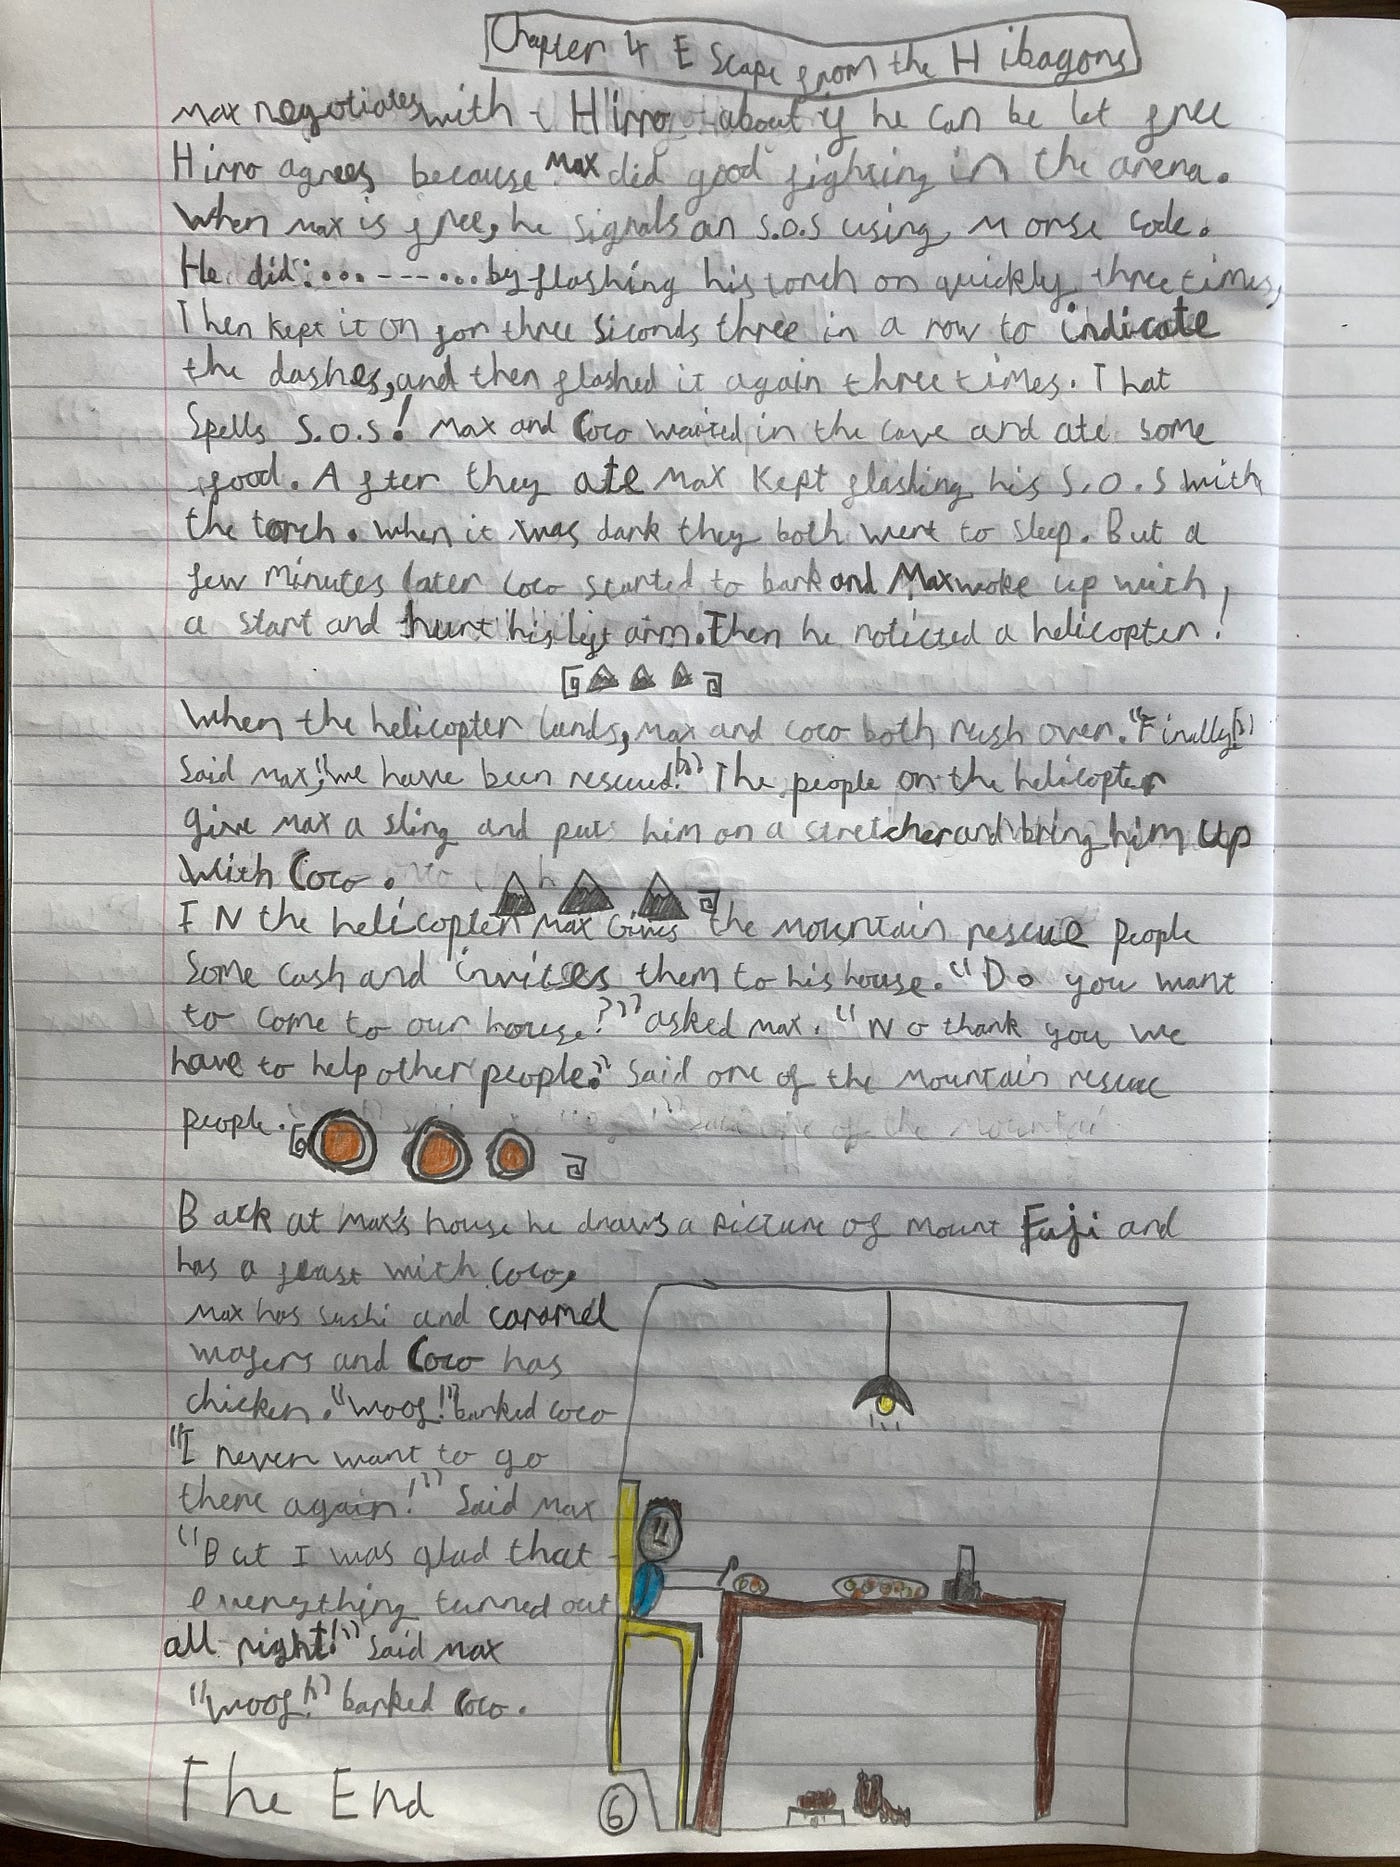 Chapter 4 Escape from the Hibagons
Max negotiates with Hirro about if he can be let free
Hirro agrees because Max did good fighting in the arena.
When Max is free, he signals an S.O.S using Morse Code.
He did: ... --- ... by flashing his torch on quickly three times,
Then kept it on for three siconds three in a row to indicate
the dashes, and then flashed it again three times. That
Spells S.O.S! Max and Coco waited in the cave and ate some
food. After they ate Max Kept flashing his S.O.S with
the torch. When it was dark they both went to sleep. But a
few minutes later Coco started to bark and Max woke up with
a start and hurt his left arm. Then he noticted a helicopter!
When the helicopter lands, Max and Coco both rush over. "Finally!"
Said Max, "we have been rescued!" The people on the helicopter
give Max a sling and put him on a stretcher and bring him up
with Coco.
IN the helicopter Max Gives the mountain rescue people
Some cash and invites them to his house. "Do you want
to come to our house?" asked Max. "No thank you we
have to help other people." Said one of the mountain rescue
people.
Back at Max's house he draws a picture of mount Fuji and
has a feast with Coco.
Max has sushi and caramel
wafers and Coco has
chicken. "Woof!" barked Coco
"I never want to go
there again!" Said Max
"But I was glad that
everything turned out
all right!" Said Max
"Woof!" barked Coco.
The End
6